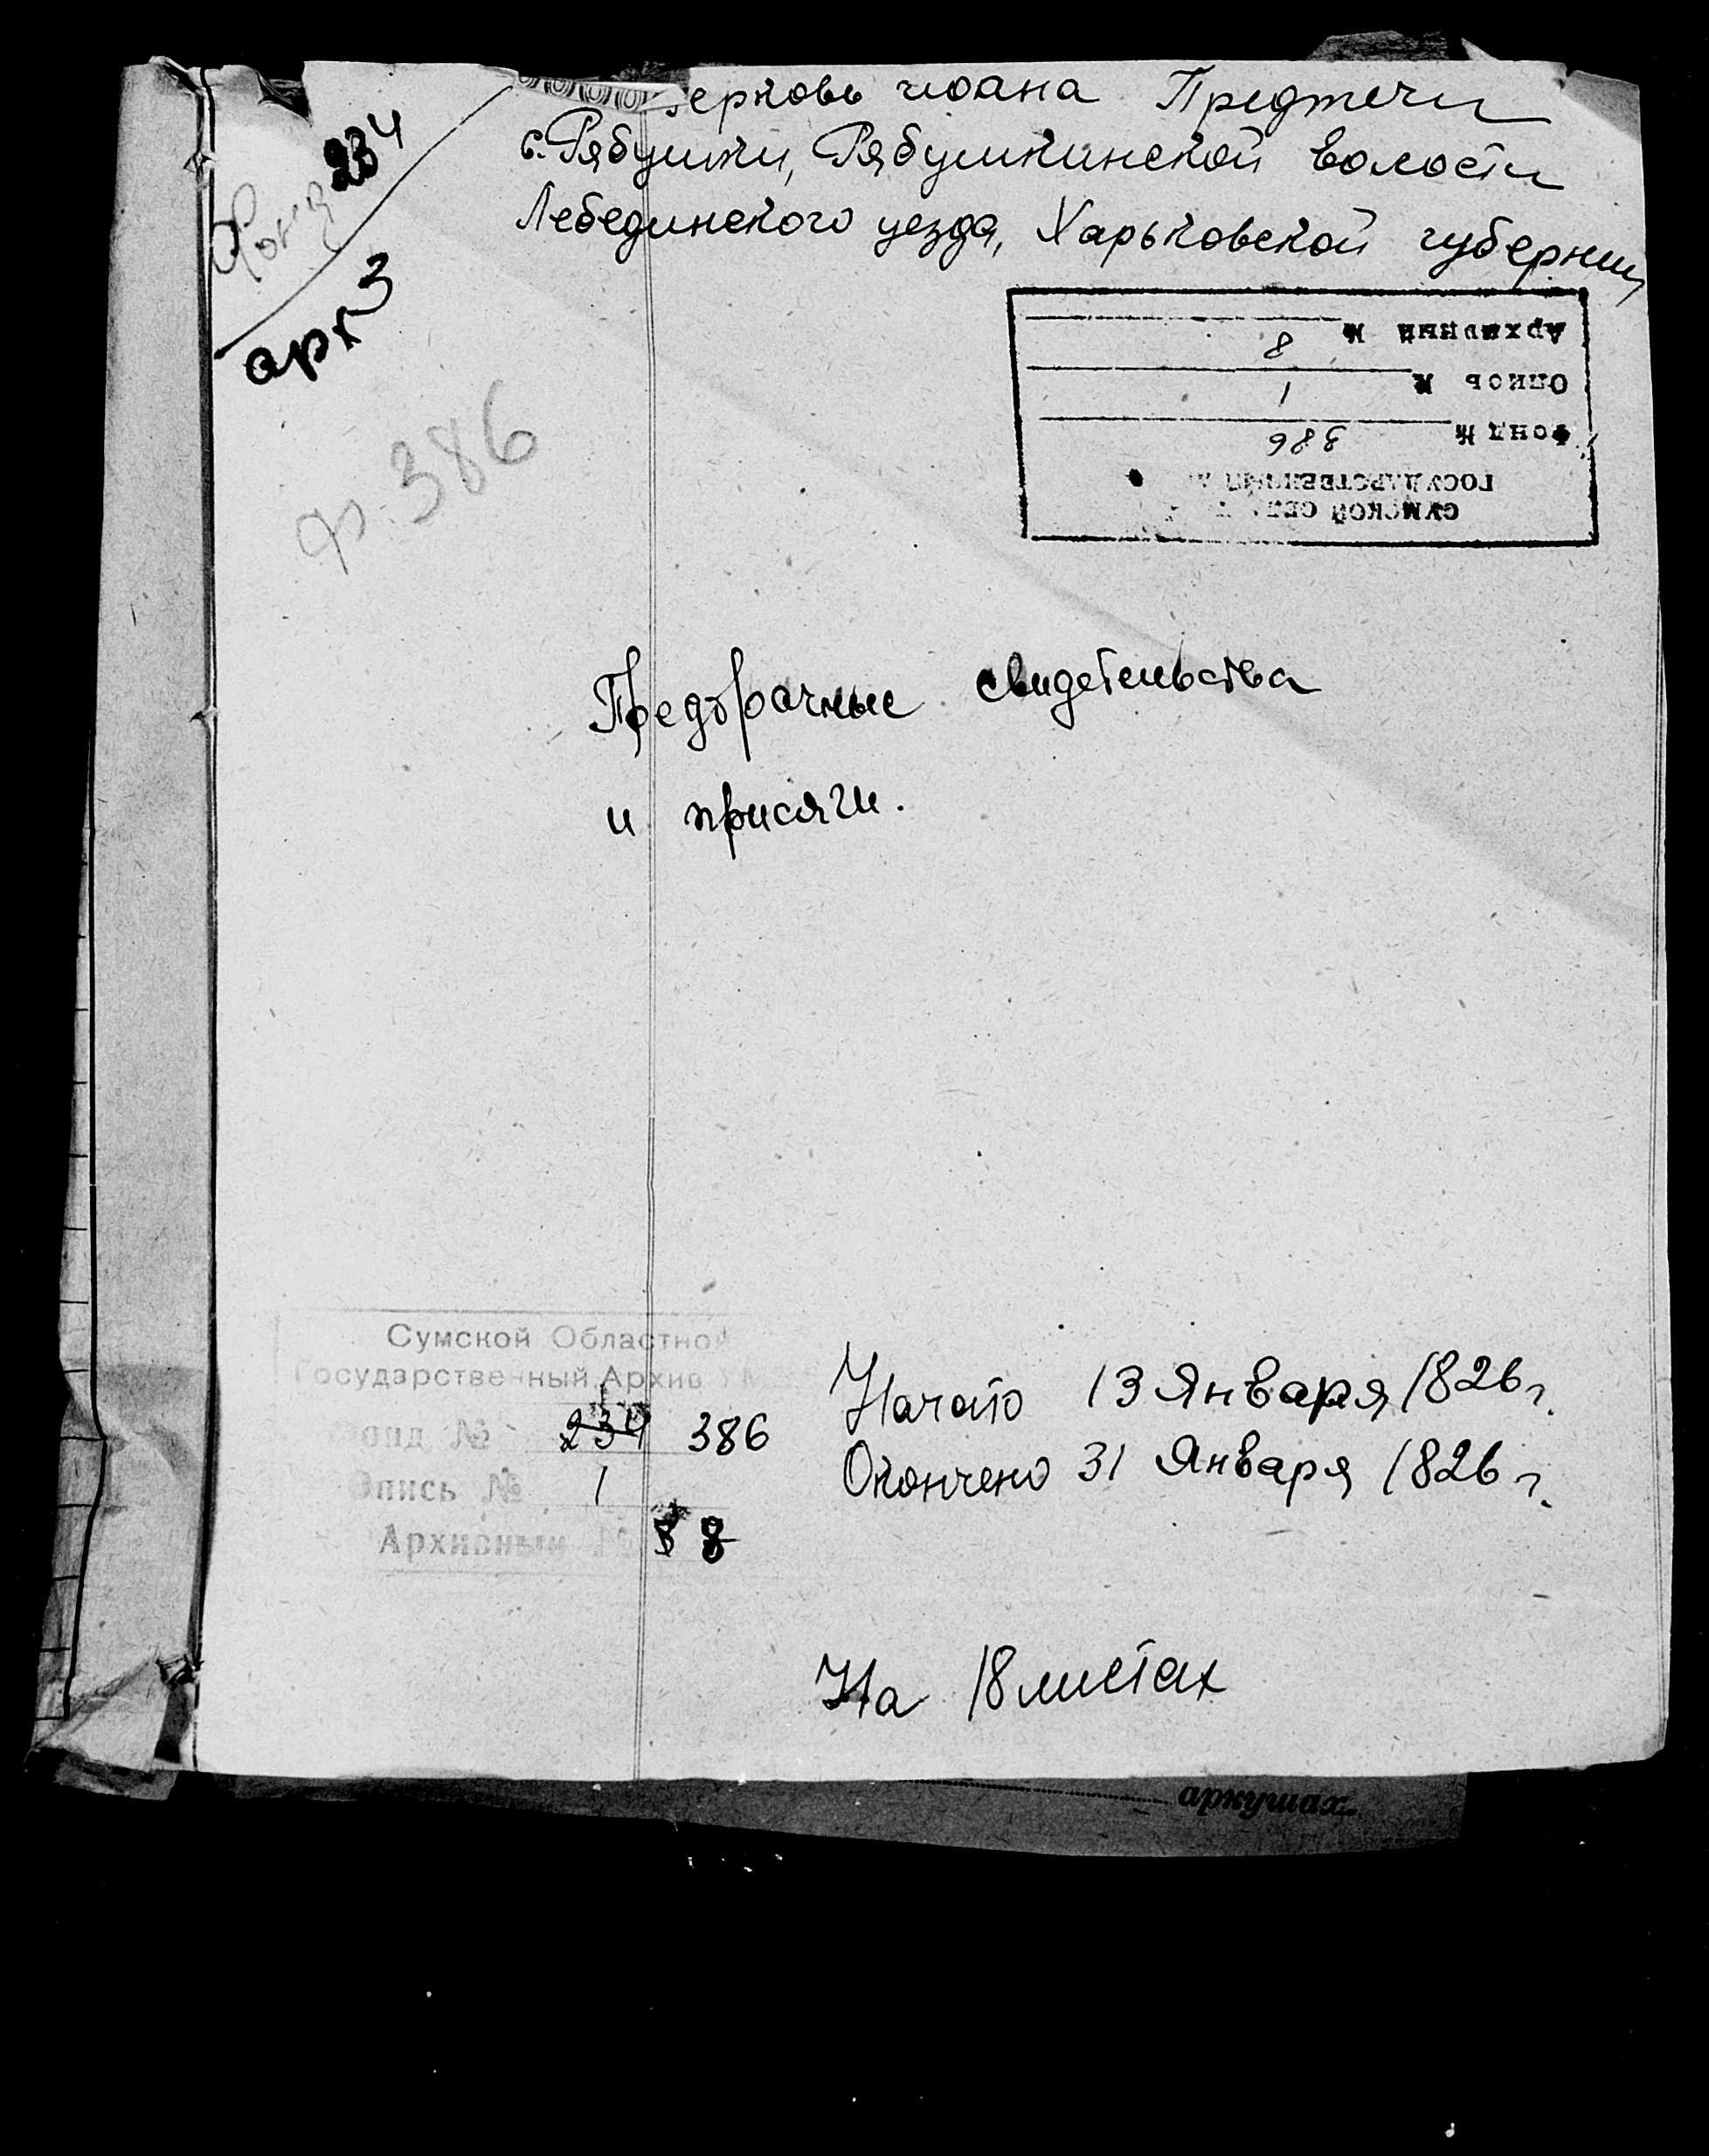 Церковь иоана Предтечи
с. Рябушки, Рябушкинской волости
Лебединского уезда, Харьковской губернии
Фонд 234
арк 3
ф. 386
Архивный № 8
Опись № 1
Фонд № 386
ГОСУДАРСТВЕННЫЙ
СУМСКОЙ
Предбрачные свидетельства
и присяги.
Сумской Областной
Государственный Архив
Фонд № 234 386
Опись № 1
Архивный № 8
Начато 13 Января 1826 г.
Окончено 31 Января 1826 г.
На 18 листах
аркушах